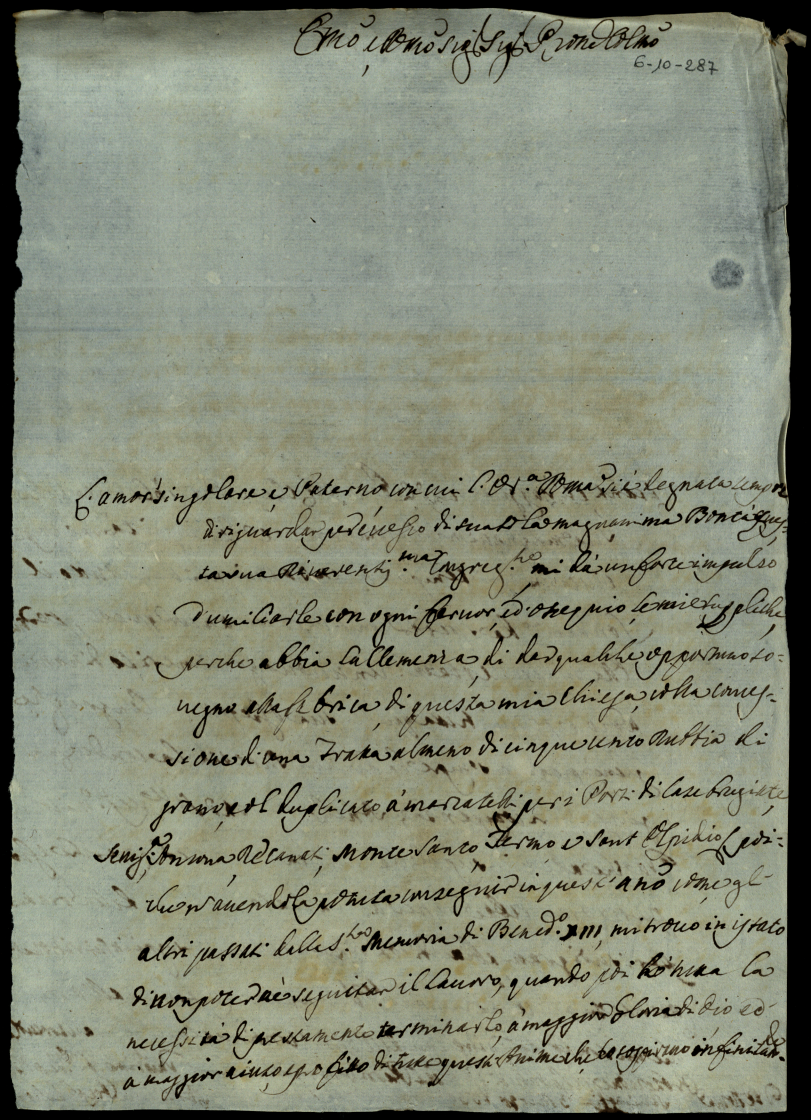 Emo, e Rmo Sigr Sigr Prone Colmo
6-10-287
L'amor singolare, e Paterno con cui l'Emza Vra Rma si è degnata sempre
di riguardar per effetto di sua la magnanima Bontà ques-
ta sua Riverentisma Congregne mi dà un forte impulso
d'umiliarle con ogni fervor, ed ossequio le mie suppliche,
perche abbia la Clemenza di dar qualche opportuno so-
vegno alla fabrica di questa mia Chiesa, colla conces-
sione d'una Tratta almeno di cinquecento Rubbia di
grano, col duplicato a marzatelli per i Porti di Case brugiate,
Senigª, Ancona, Recanati, Monte Santo, Fermo, e Sant'Elpidio, poi-
che n'avendola potuta conseguire in quest'anno come gl'
altri passati dalla Sta Memoria di Bened.o XIII, mi trovo in istato
di non poter nè seguitar il lavoro, quando poi hò tutta la
necessità di prestamente terminarlo, à maggior Gloria di Dio ed
a maggior aiuto, e profitto di tutte queste Anime, che lo sospirano infinitam-